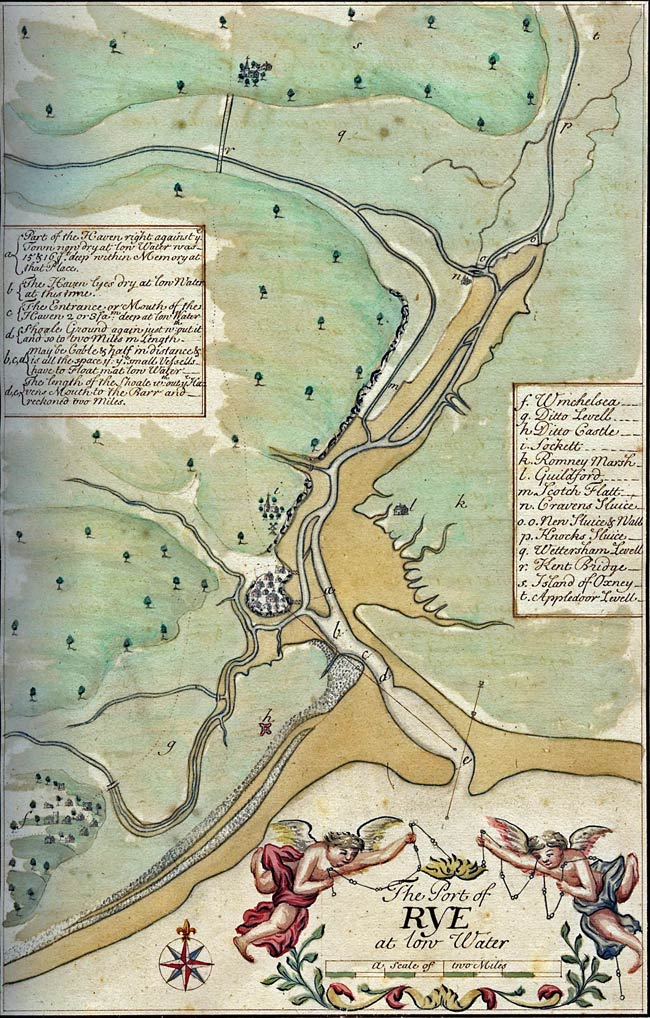 s
t
q
p
r
Part of the Haven right against yᵉ
Town now dry at low Water was
a
15 & 16 fᵗ deep within Memory at
that Place.
b
The Haven lyes dry at low Water
at this time.
c
The Entrance or Mouth of the
Haven 2 or 3 fa.ᵐ deep at low Water
d
Shoale Ground again just wᵗʰout it
and so to two Miles in Length.
b,c,d
may be Cable & half in distance &
is all the space yᵉ small Vessells
have to Float in at low Water
d,e
The length of the Shoale wᵗʰout yᵉ Ha=
vens Mouth to the Barr and
reckoned two Miles.
o
o
n
m
f. Winchelsea
g. Ditto Levell
h. Ditto Castle
i. Lockett
k. Romney Marsh
l. Guildford
m. Scotch Flatt
n. Cravens Sluice
o.o. New Sluice & Wall
p. Knocks Sluice
q. Wettersham Levell
r. Kent Bridge
s. Island of Oxney
t. Appledoor Levell
i
l
k
a
b
c
d
h
g
e
The Port of
RYE
at low Water
a Scale of two Miles